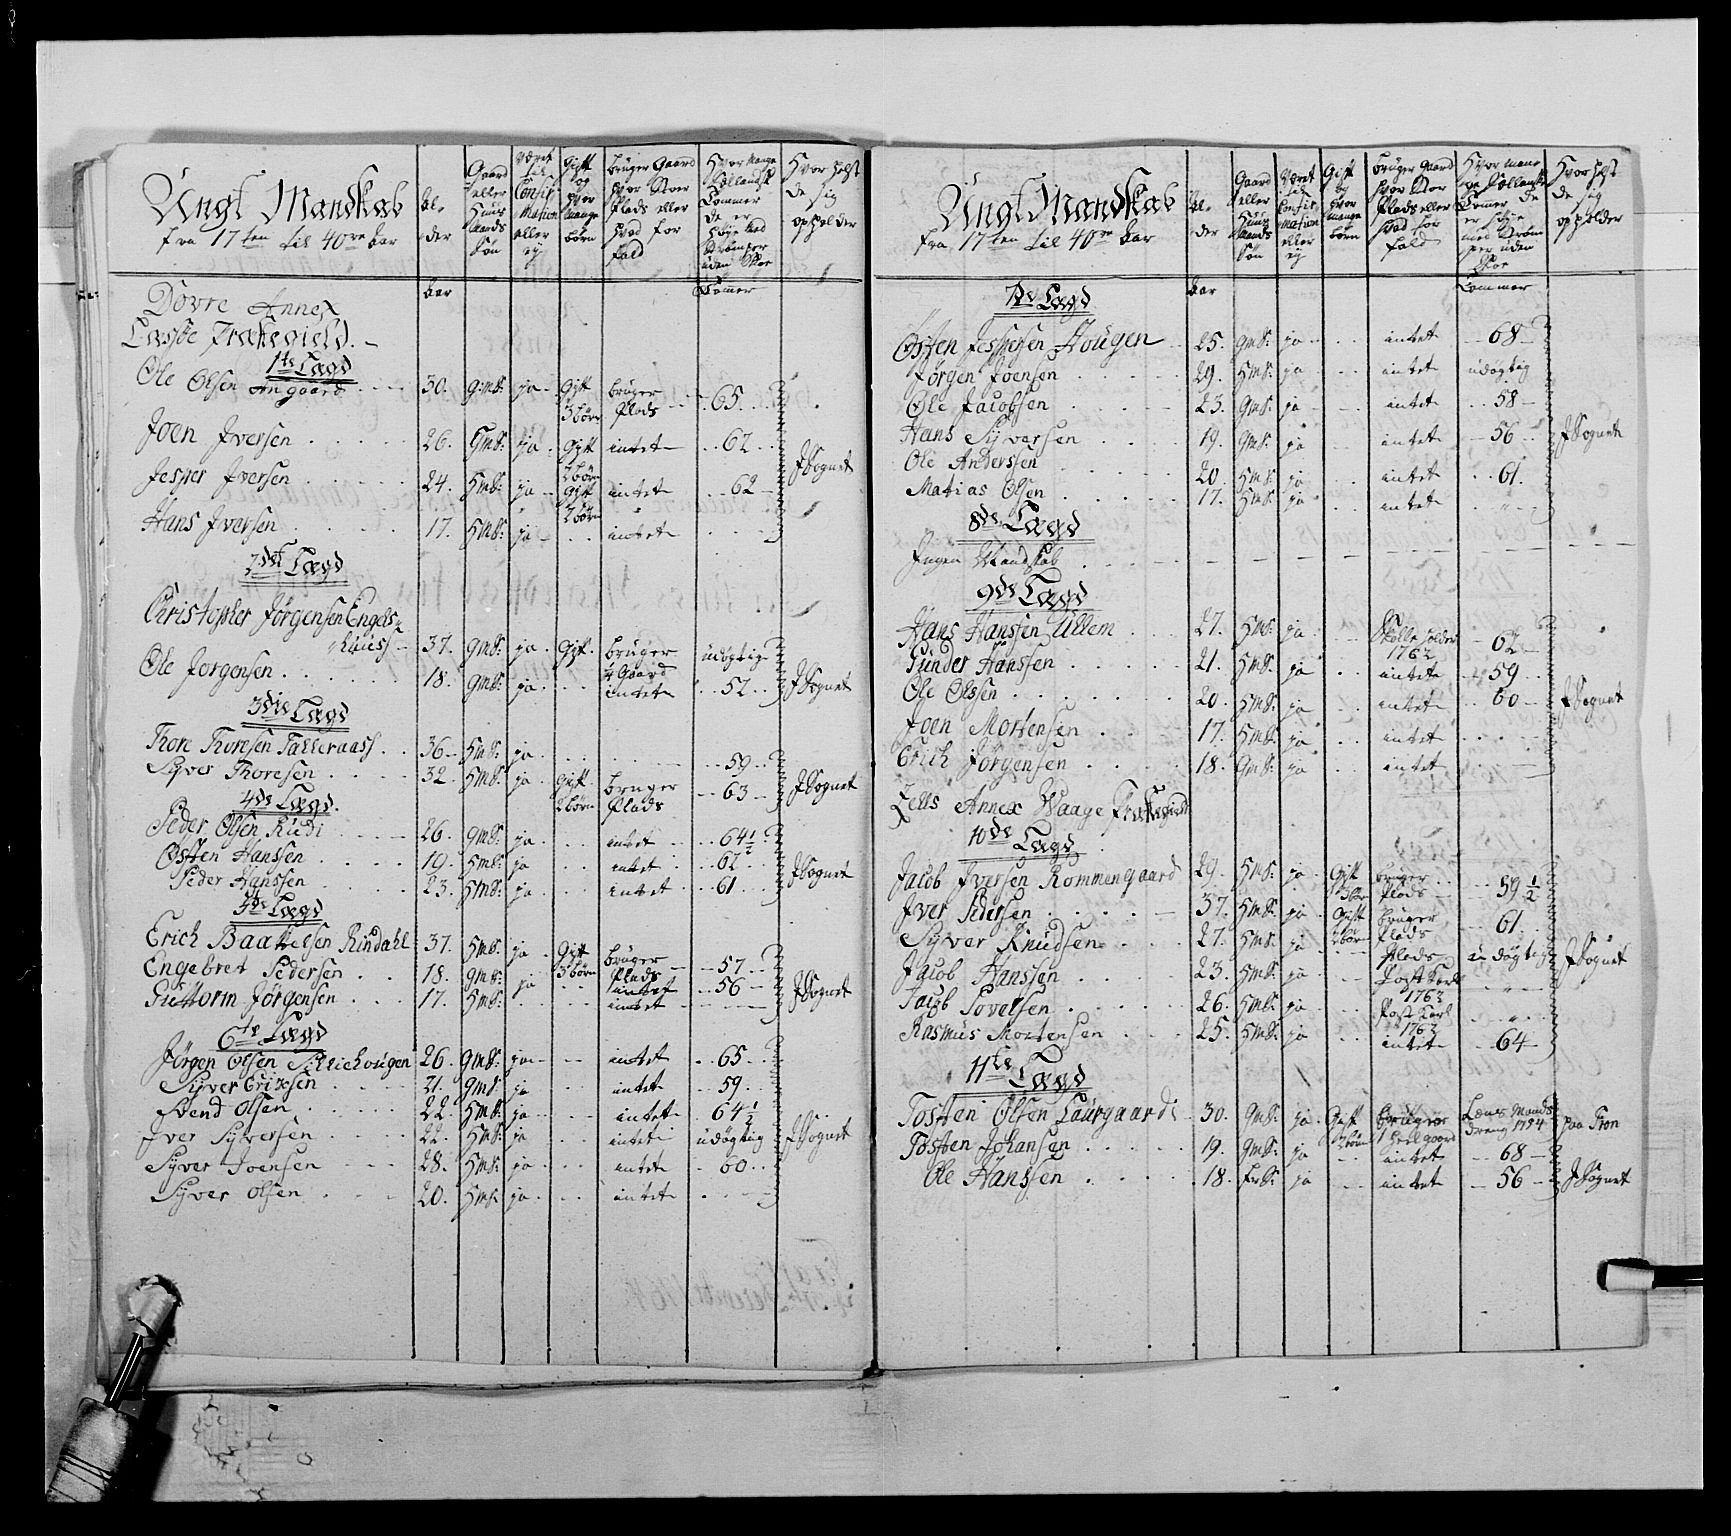 Ungt Mandskab
fra 17ten til 40ve aar
Al-
der
Gaard
eller
Huus
Mands
Søn
Været
til
Confir
Mation
eller
ej
Gift
og
hvor
mange
børn
bruger Gaard
hvor stoer
Plads eller
hvad for
fald
Hvor Mange
Sællandsk
Tommer
de er
høye med
Strømper
uden Skoe
Hvor helst
de sig
opholder
aar
Tommer
Dovre Annex
Lessøe Præstegield.
1ste Lægd
Ole Olsen Angaard 30. GMS: ja Gift 3 børn bruger Plads 65.
Joen Iversen 26. GMS: ja Gift 2 børn intet 62
Jesper Iversen 24. HMS: ja Gift 2 børn intet 62 I Sognet
Hans Iversen 17. HMS: ja intet
2det Lægd
Christopher Jørgensen Engels-
huuss 37. GMS: ja Gift bruger 1/4 Gaard udøgtig
Ole Jørgensen 18. GMS: ja intet 52 I Sognet
3die Lægd
Thore Thoresen Talleraass 36 HMS: ja 59
Syver Thoresen 32 HMS: ja Gift 2 børn bruger Plads 63 I Sognet
4de Lægd.
Peder Olsen Rudi 26. GMS: ja intet 64 1/2
Østen Hanssen 19. HMS: ja intet 62
Peder Hanssen 23. HMS: ja intet 61 I Sognet
5te Lægd
Erich Baardsen Rindahl 37. HMS: ja Gift 3 børn bruger Plads 57
Engebret Pedersen 18. GMS: ja intet 56
Guttorm Jørgensen 17. HMS: intet I Sognet
6te Lægd
Jørgen Olsen Sillichougen 26. GMS: ja intet 65
Syver Erixsen 21. GMS: ja intet 59
Svend Olsen 22. HMS: ja intet 64 1/2
Iver Syversen 22. HMS: ja intet udøgtig I Sognet
Syver Joensen 28. HMS: ja intet 60
Syver Olsen 20. HMS. ja intet
Ungt Mandskab
fra 17ten til 40ve aar
Al-
der
Gaard
eller
Huus
Mands
Søn
Været
til
Confir
Mation
eller
ej
Gift
og
hvor
mange
børn
bruger Gaard
hvor stor
Plads eller
hvad for
fald
Hvor man
ge Sællandske
Tommer de
er høye
med Strøm
per uden
Skoe
Hvor helst
de sig
opholder
aar
Tommer
7de Lægd
Østen Jespersen Hougen 25. GMS: ja intet 68
Jørgen Joensen 29. HMS: ja intet udøgtig
Ole Jacobsen 23. GMS: ja intet 58
Hans Syversen 19. GMS: ja intet 56 I Sognet
Ole Anderssen 20. HMS: ja intet 61.
Matias Olsen 17. HMS: ja intet
8de Lægd
Ingen Mandskab
9de Lægd
Hans Hanssen Ullem 27. HMS: ja 1762 62
Gunder Hanssen 21. HMS: ja intet 59
Ole Olssen 20. HMS: ja intet 60 I Sognet
Joen Mortensen 17. HMS: ja intet
Erich Jørgensen 18. GMS: ja intet
Zells Annex Waage Præstegield
10de Lægd
Jacob Iversen Rommengaard 29. HMS: ja Gift 1 barn bruger Plads 59 1/2
Iver Pedersen 37. HMS: ja Gift 2 børn bruger Plads 61
Syver Knudsen 27. HMS: ja Plads udøgtig I Sognet
Jacob Hanssen 23. HMS: ja Post Karl 1763
Jacob Povelsen 26. HMS: ja Post Karl 1763
Rasmus Mortensen 25. HMS: ja intet 64
11te Lægd
Tosten Olsen Laurgaard 30. GMS: ja Gift 2 børn bruger 1 heel gaard Lænsmands dreng 1754 paa Fron
Tosten Johansen 19. GMS: ja intet 68
Ole Hanssen 18. HMS: ja intet 56 I Sognet